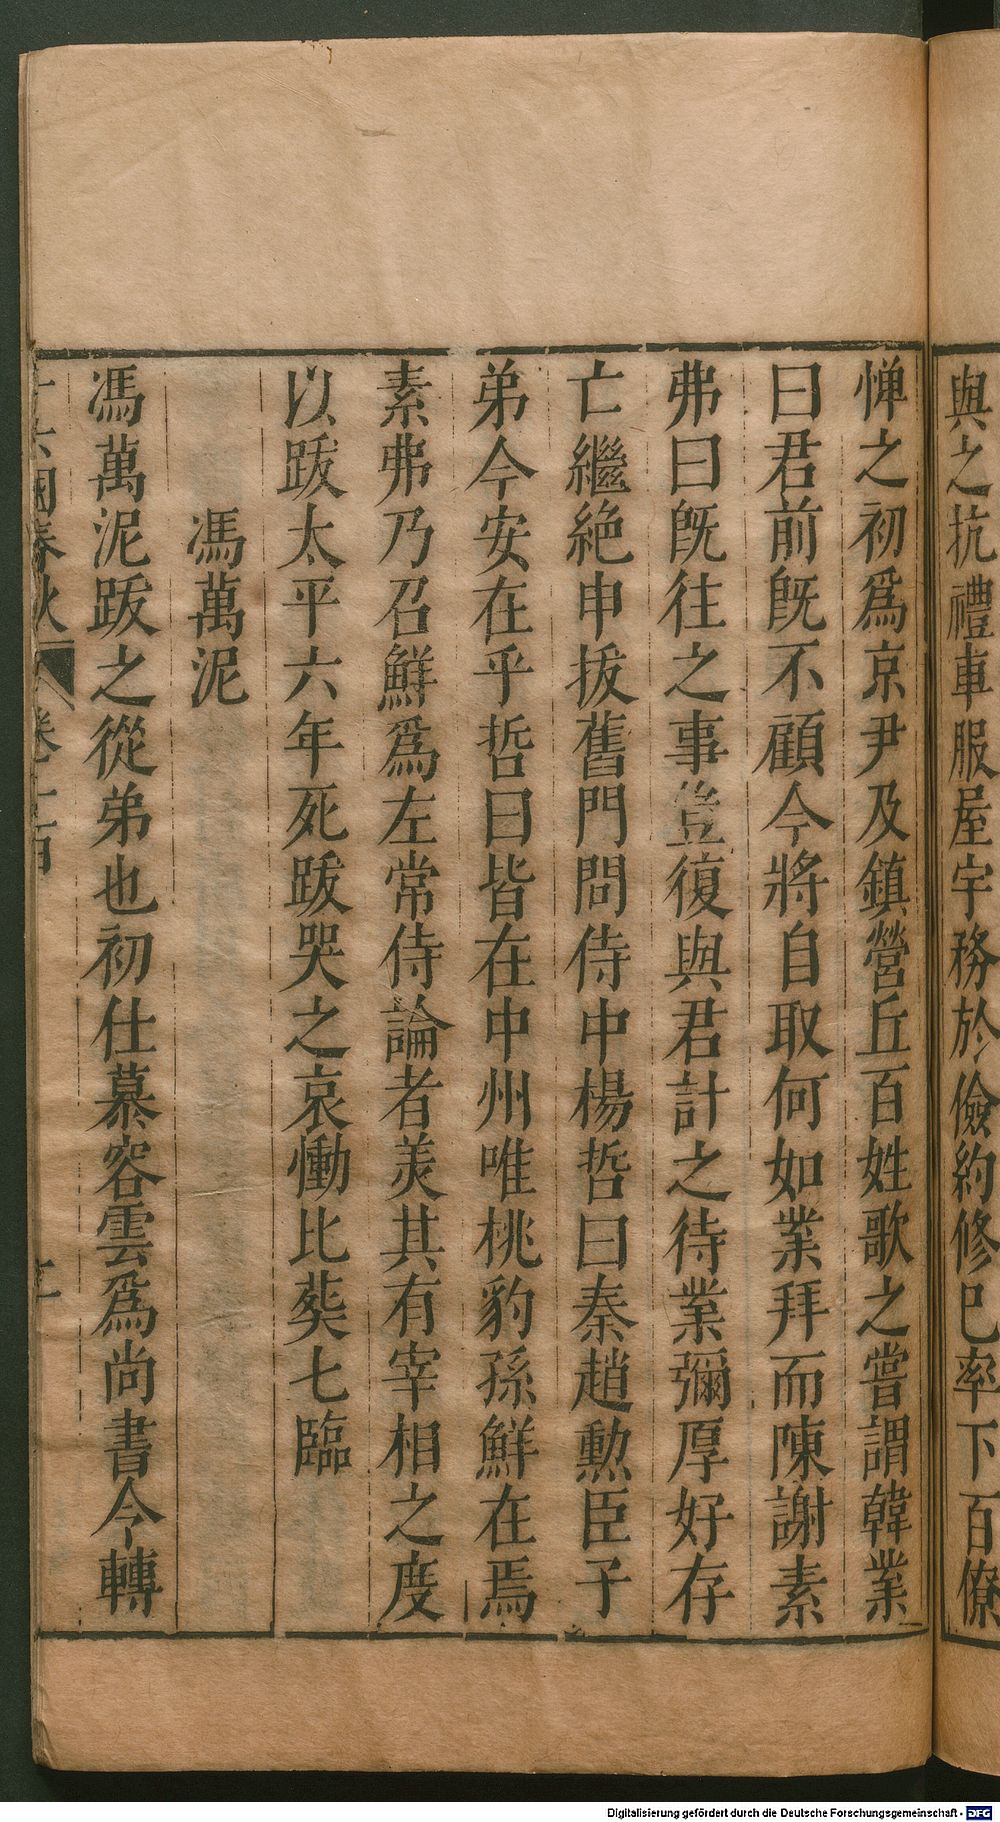 與之抗禮車服屋宇務於儉約修已率下百僚
憚之初爲京尹及鎮營丘百姓歌之嘗謂韓業
曰君前旣不顧今將自取何如業拜而陳謝素
弗曰旣往之事豈復與君計之待業彌厚好存
亡繼絶申拔舊門問侍中楊哲曰秦趙勲臣子
弟今安在乎哲曰皆在中州唯桃豹孫鮮在焉
素弗乃召鮮爲左常侍論者羙其有宰相之度
以跋太平六年死跋哭之哀慟比葬七臨
馮萬泥
馮萬泥跋之從弟也初仕慕容雲爲尚書令轉
十六國春秋 卷一百
Digitalisierung gefördert durch die Deutsche Forschungsgemeinschaft - DFG